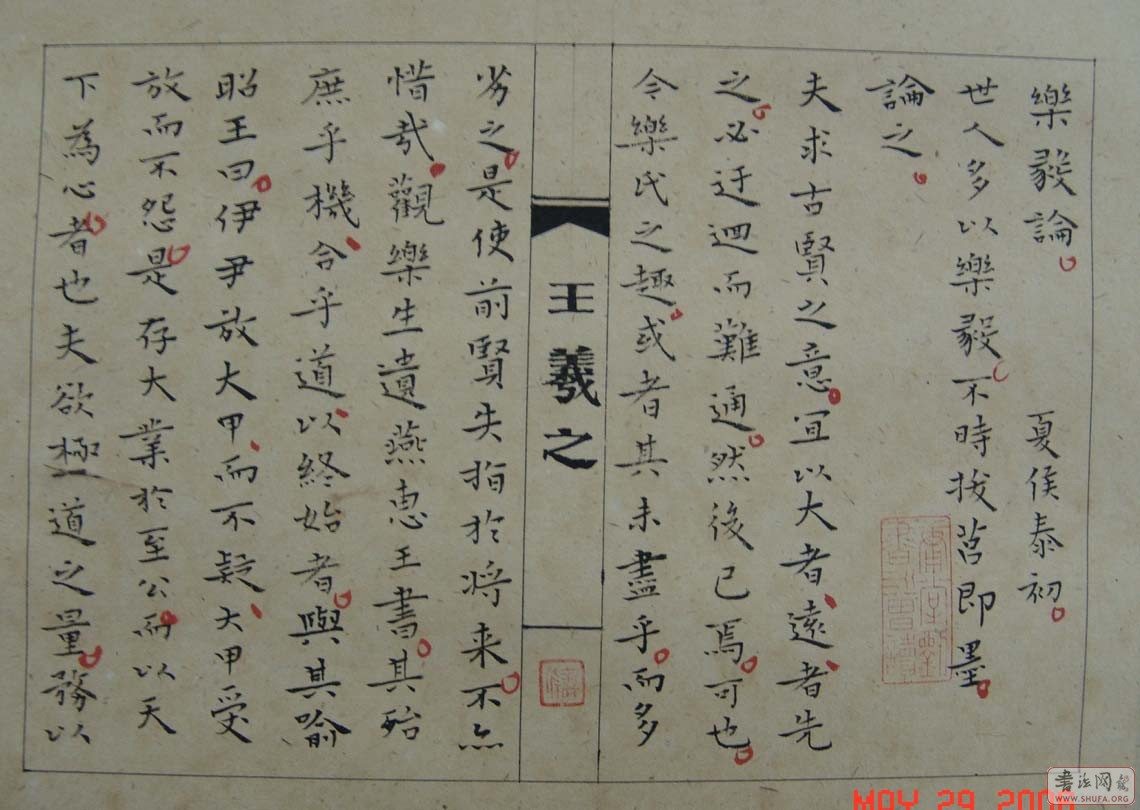 樂毅論 夏侯泰初
世人多以樂毅不時拔莒即墨
論之
夫求古賢之意宜以大者遠者先
之必迂迴而難通然後已焉可也
今樂氏之趣或者其未盡乎而多
劣之是使前賢失指於将来不亦
惜哉觀樂生遺燕惠王書其殆
庶乎機合乎道以終始者與其喻
昭王曰伊尹放大甲而不疑大甲受
放而不怨是存大業於至公而以天
下為心者也夫欲極道之量務以
王羲之
書法网
WWW.SHUFA.ORG
MAY 29 200